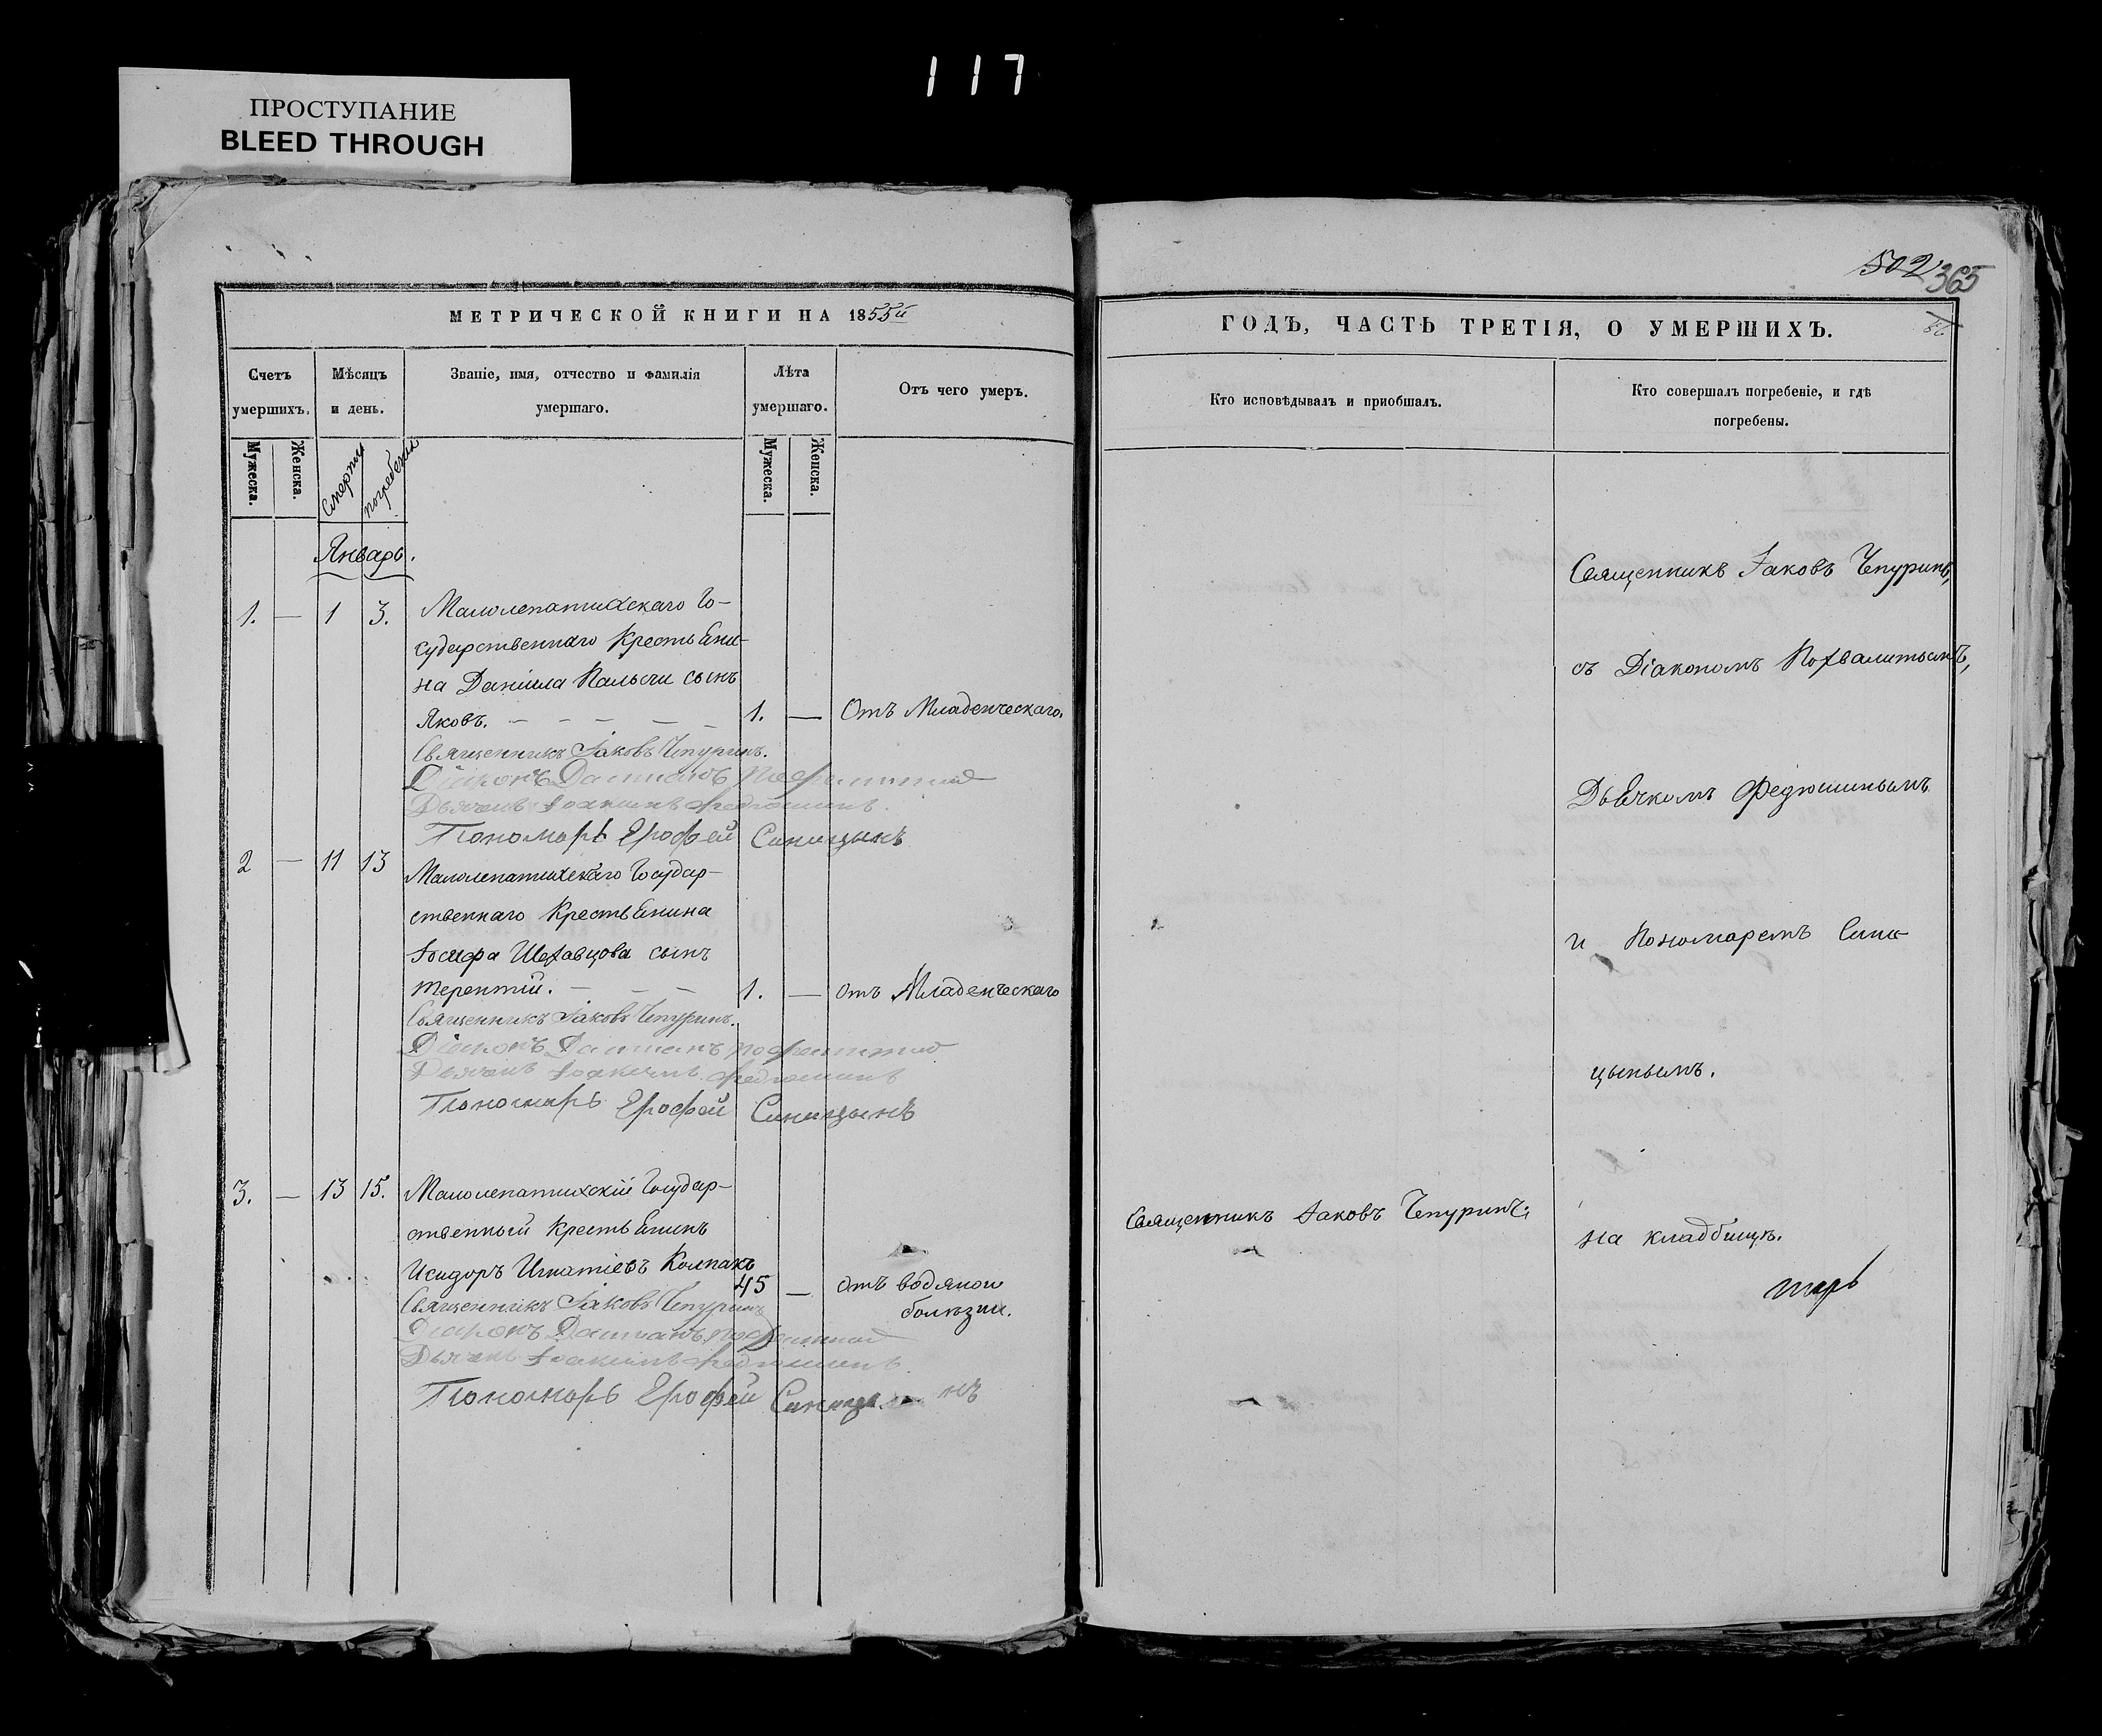 117
ПРОСТУПАНИЕ
BLEED THROUGH
МЕТРИЧЕСКОЙ КНИГИ НА 1855й
Счетъ умершихъ.
Мѣсяцъ и день.
Званіе, имя, отчество и фамилія умершаго.
Лѣта умершаго.
Отъ чего умеръ.
Мужеска.
Женска.
Смерти
погребенія
Мужеска.
Женска.
Январь.
1. — 1 3. Малолепатихскаго Го-
сударственнаго Крестьяни-
на Даніила Пальчи сынъ
Яковъ. — — — — — 1. — Отъ Младенческаго.
Священникъ Іаковъ Чепуринъ.
Діаконъ Даміанъ
Дьячекъ Іоакимъ Федюшинъ.
Пономарь Ерофей Синицынъ
2 — 11 13 Малолепатихскаго Государ-
ственнаго Крестьянина
Іосифа Шехавцова сынъ
Терентій. — — — 1. — отъ Младенческаго
Священникъ Іаковъ Чепуринъ.
Діаконъ Даміанъ
Дьячекъ Іоакимъ Федюшинъ
Пономарь Ерофей Синицынъ
3. — 13 15. Малолепатихскій Государ-
ственный Крестьянинъ
Исидоръ Игнатіевъ Колпакъ
45 — отъ водяной
болѣзни.
Священникъ Іаковъ Чепуринъ
Діаконъ Даміанъ
Дьячекъ Іоакимъ Федюшинъ
Пономарь Ерофей Синицынъ
502 365
ГОДЪ, ЧАСТЬ ТРЕТІЯ, О УМЕРШИХЪ.
Кто исповѣдывалъ и приобшалъ.
Кто совершалъ погребеніе, и гдѣ
погребены.
Священникъ Іаковъ Чепуринъ,
съ Діакономъ Похвалитымъ,
Дьячкомъ Федюшинымъ
и Пономаремъ Сини-
цынымъ.
Священникъ Іаковъ Чепуринъ;
на кладбищѣ.